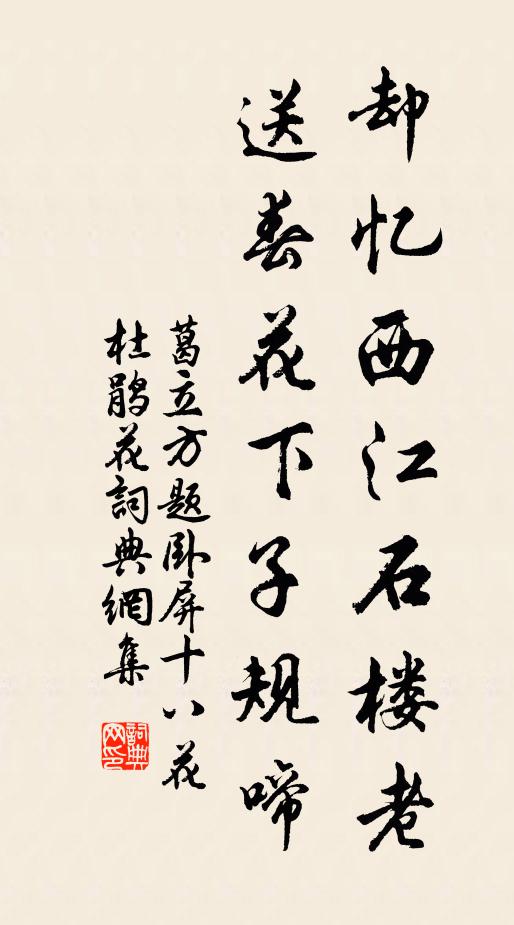 却忆西江石楼老
送春花下子规啼
葛立方题卧屏十八花
杜鹃花詞典網集
詞典网印